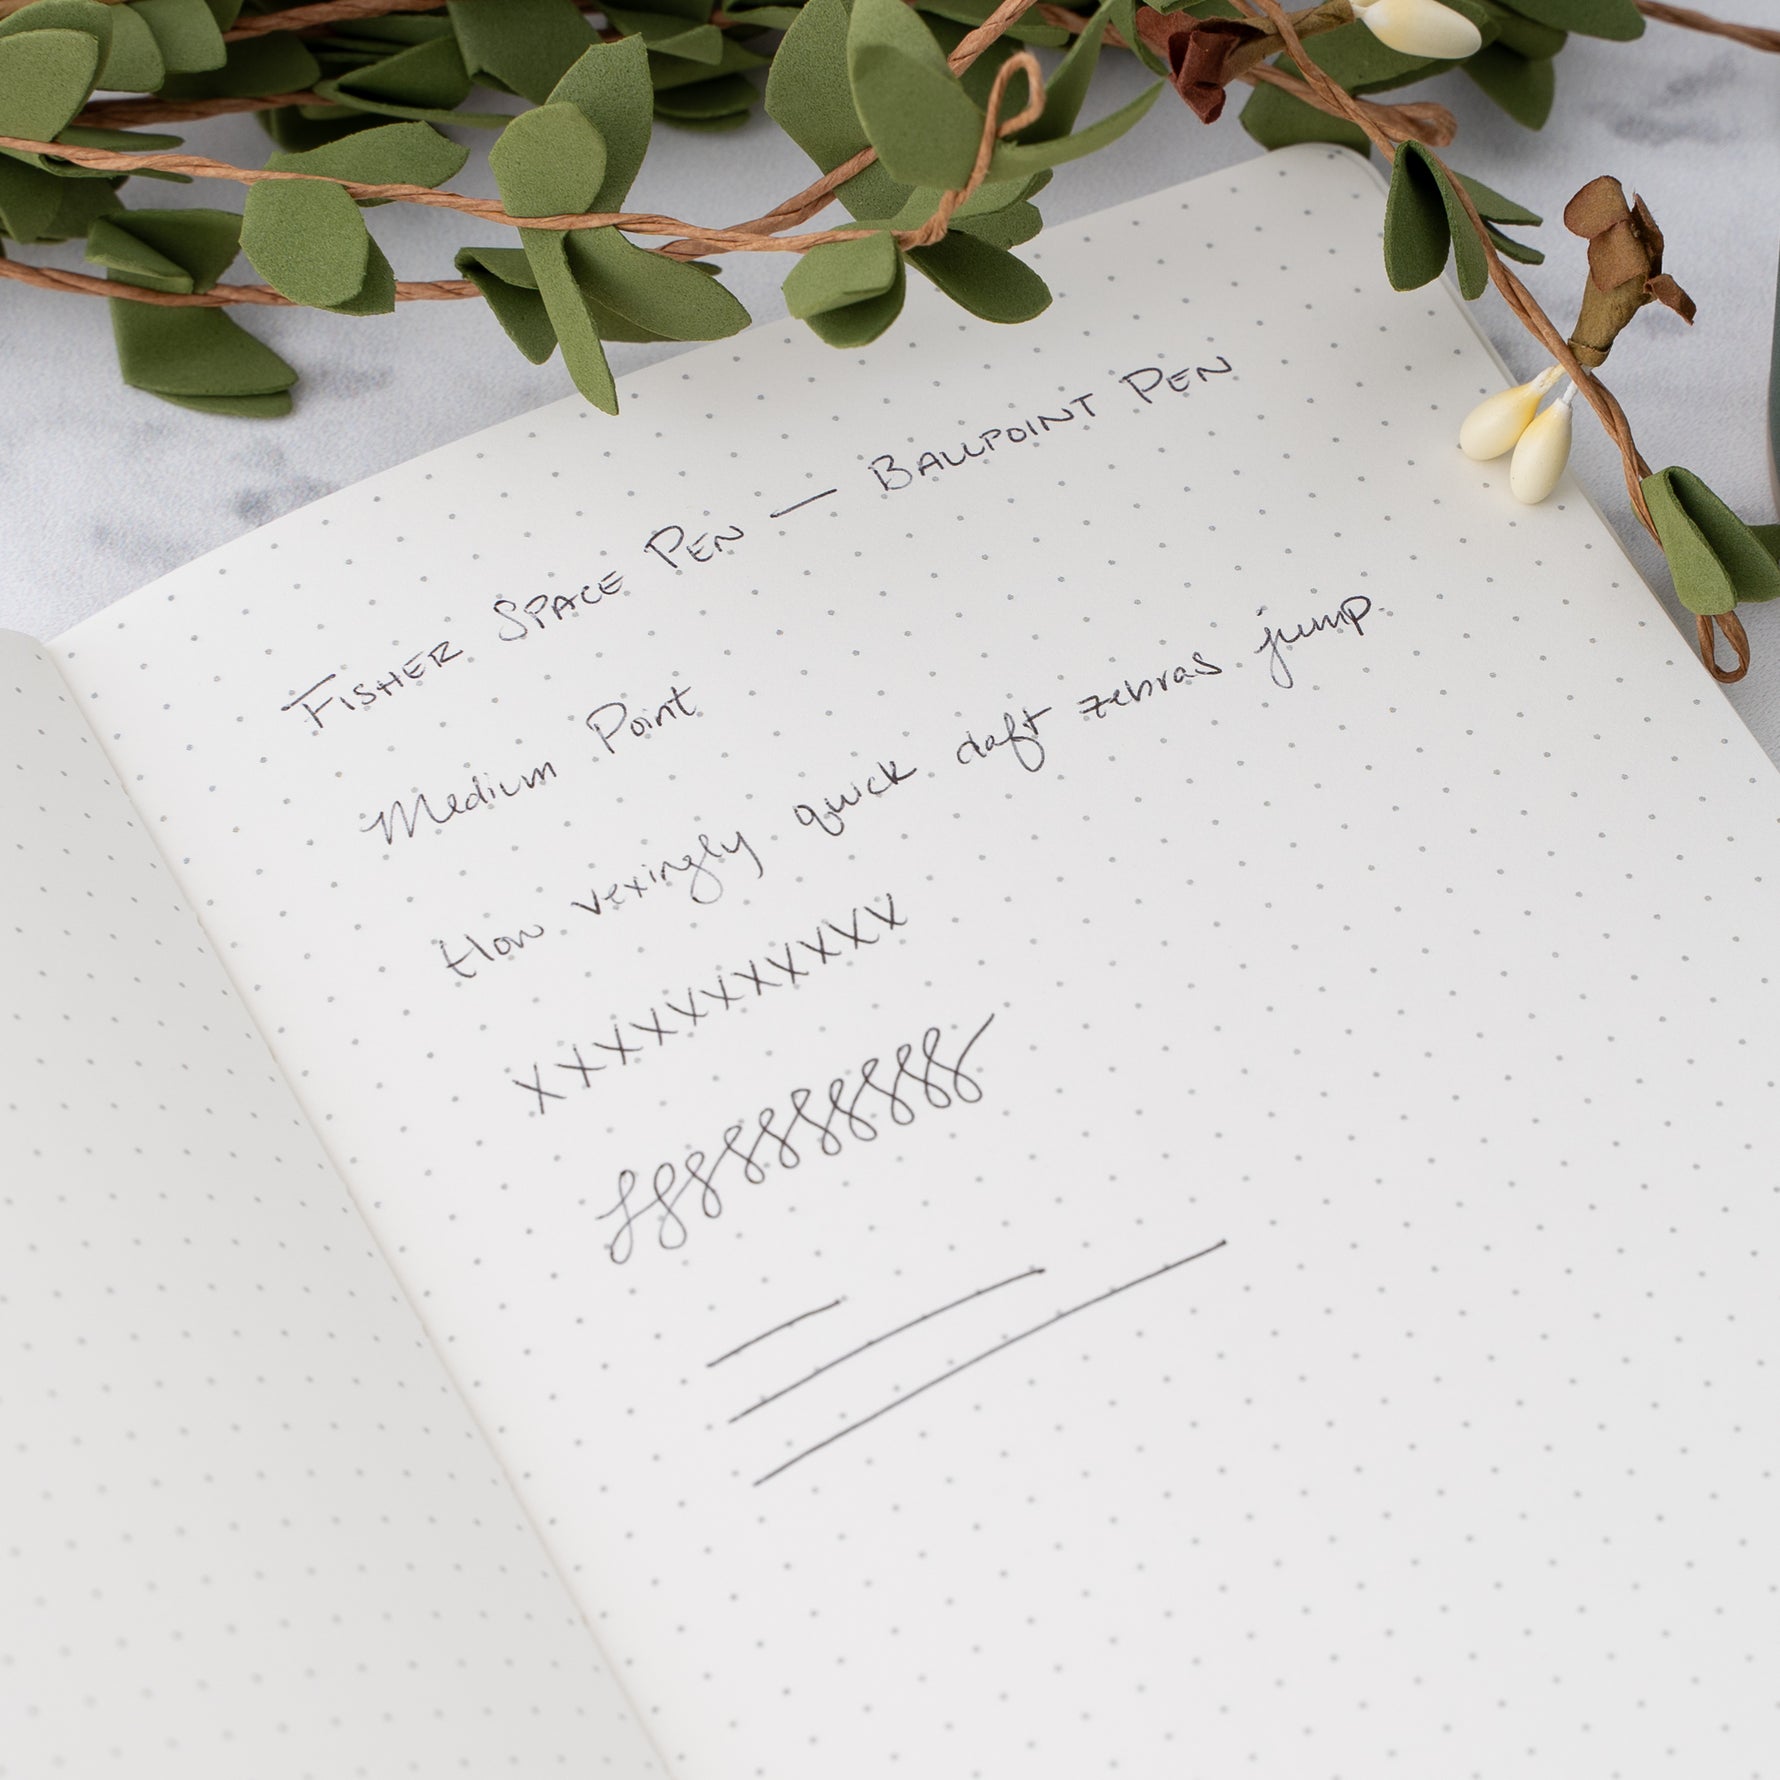 FISHER SPACE PEN — BALLPOINT PEN
Medium Point
How vexingly quick daft zebras jump.
XXXXXXXXXXX